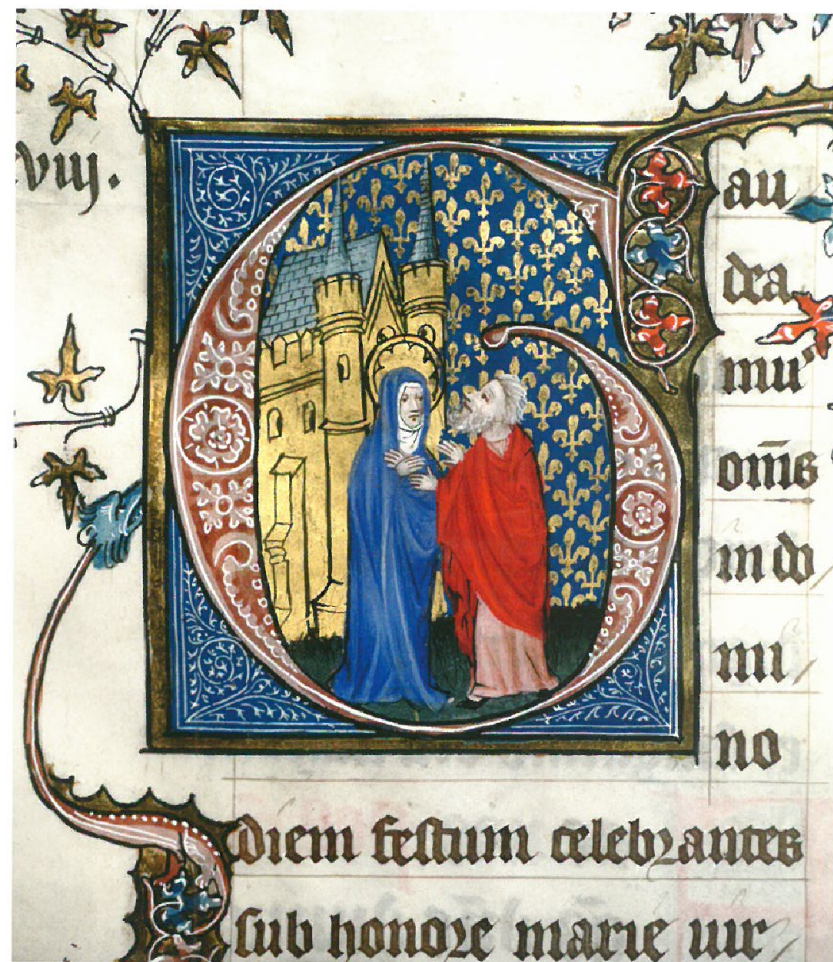 viij.
G
au
dea
mu⁹
om̄s
in do
mi
no
diem festum celebrantes
sub honore marie uir